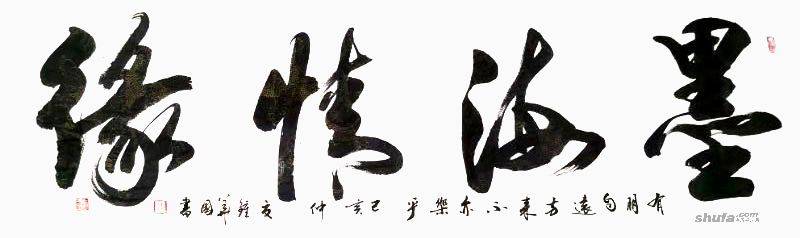 墨海情缘
有朋自远方来不亦樂乎 己亥仲夏 國書
shufa.com